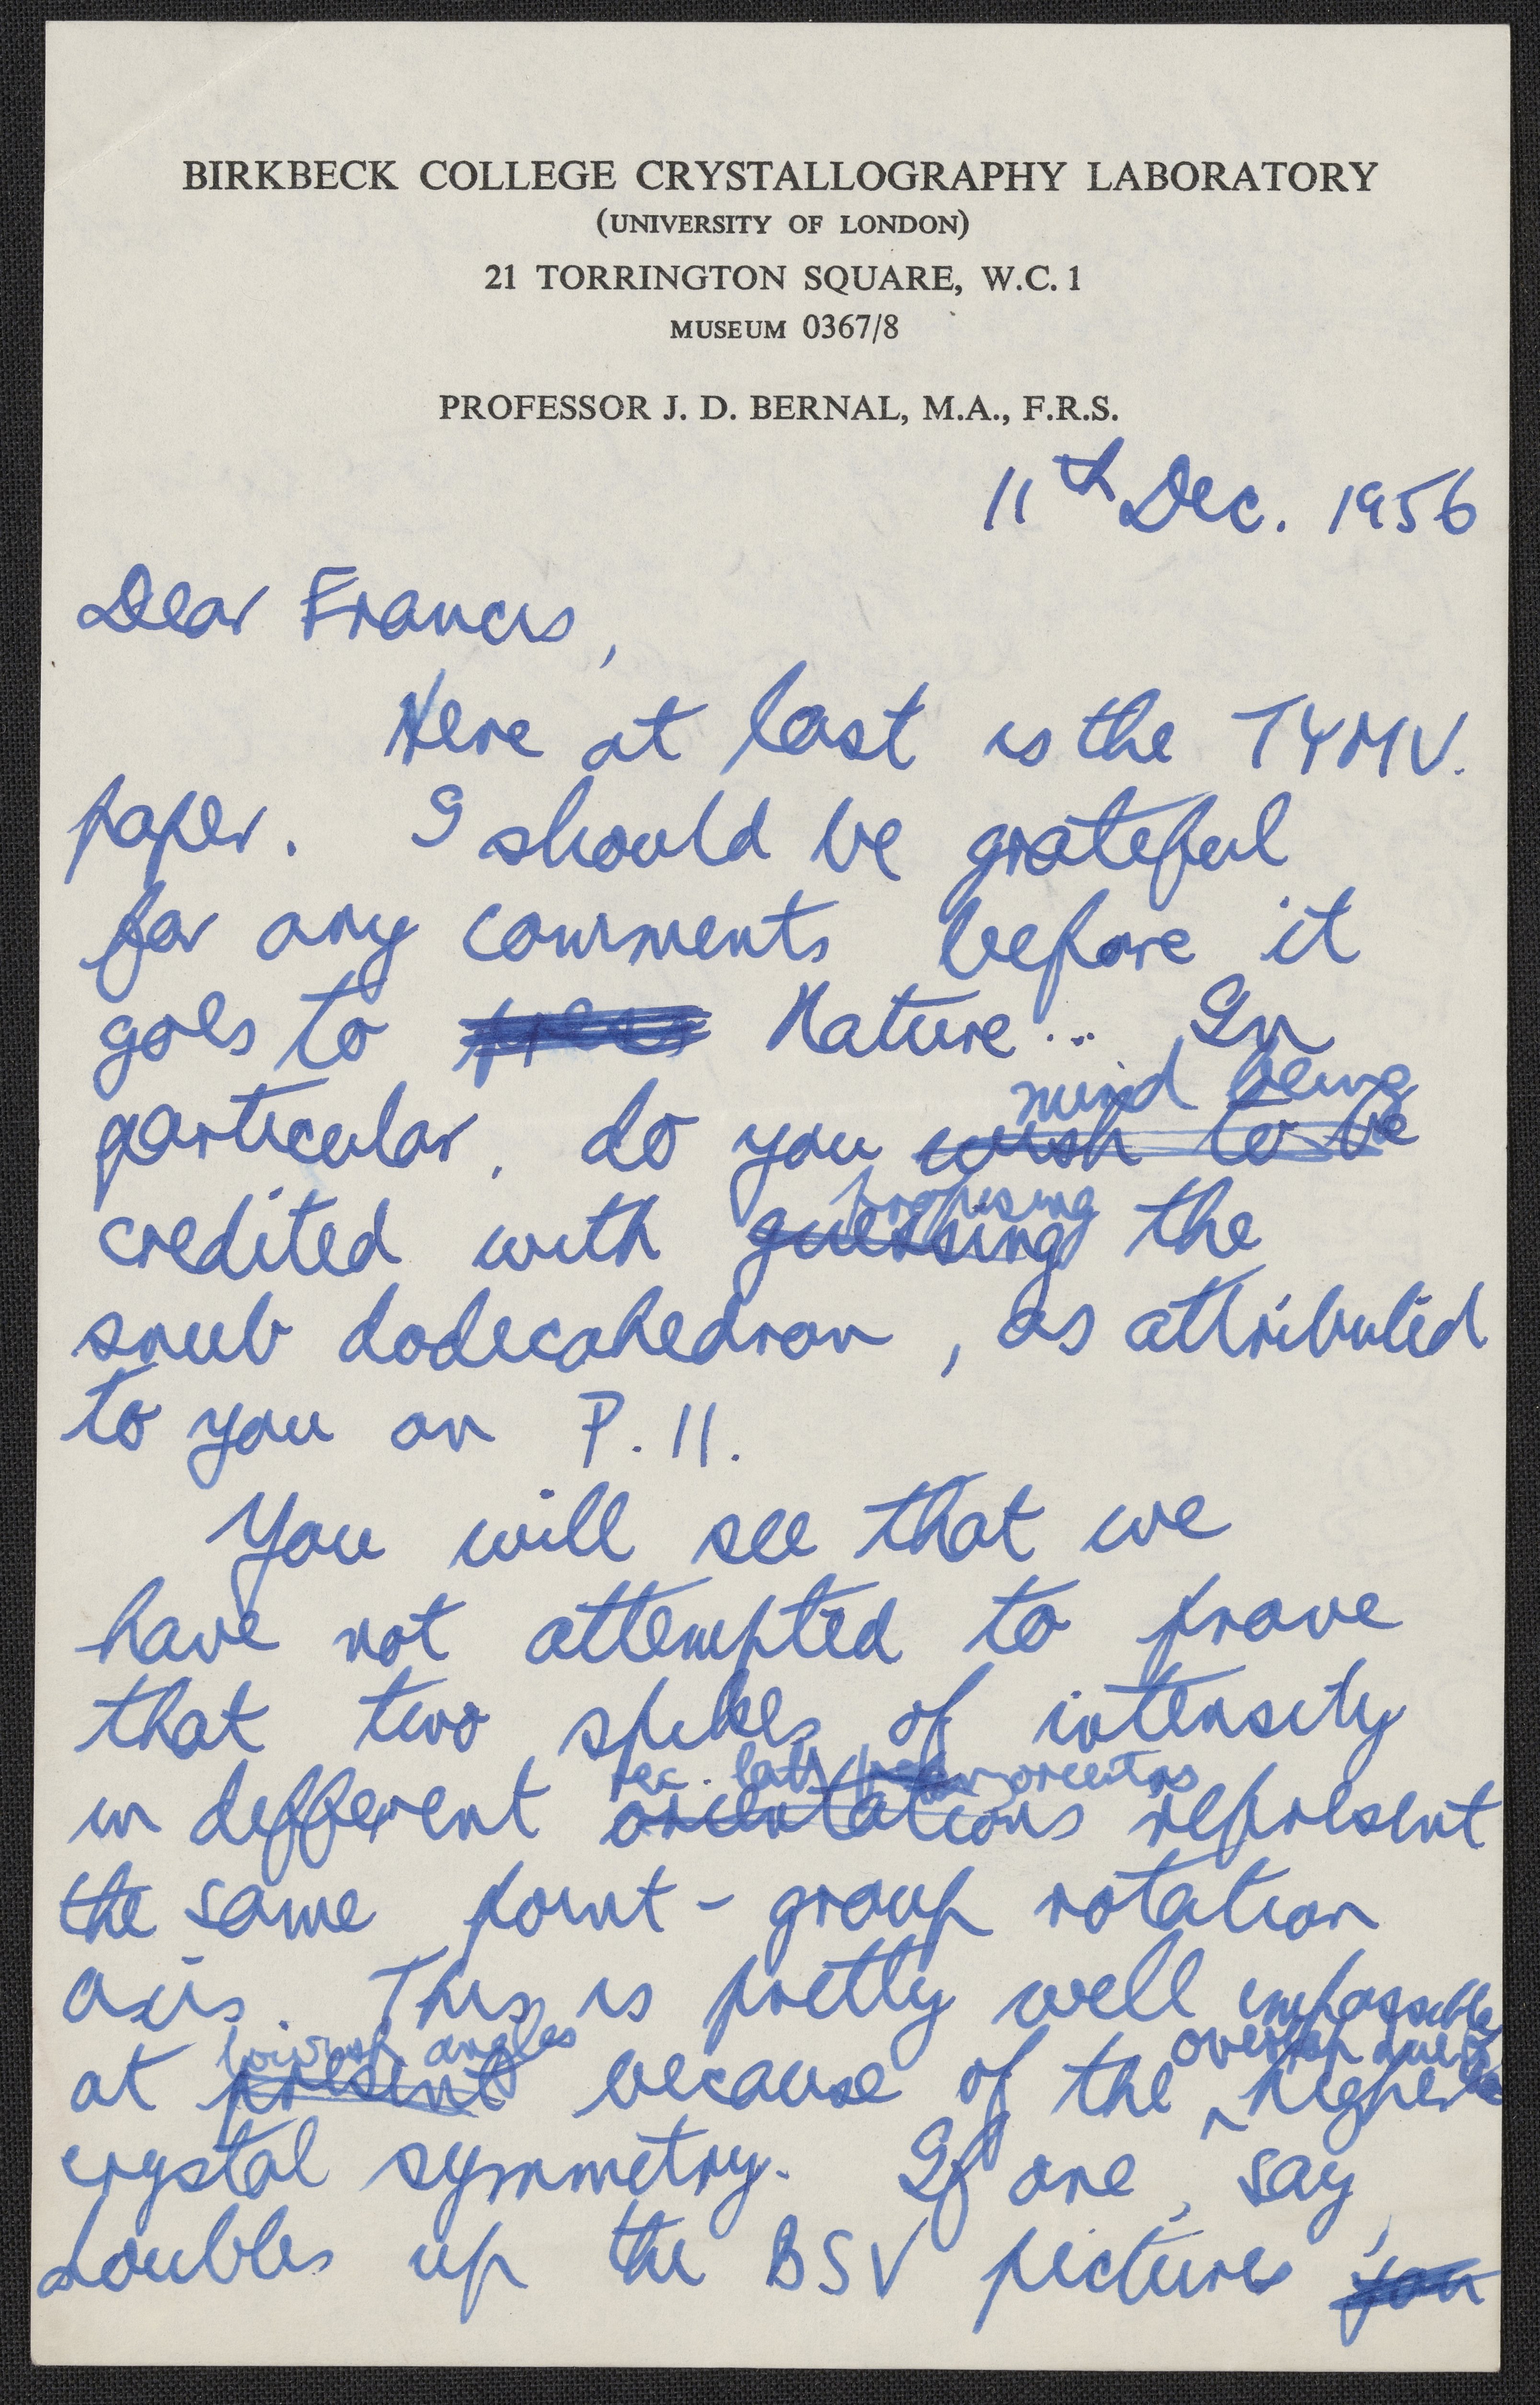 BIRKBECK COLLEGE CRYSTALLOGRAPHY LABORATORY
(UNIVERSITY OF LONDON)
21 TORRINGTON SQUARE, W.C. 1
MUSEUM 0367/8
PROFESSOR J. D. BERNAL, M.A., F.R.S.
11th Dec. 1956
Dear Francis,
Here at last is the TYMV.
paper. I should be grateful
for any comments before it
goes to press Nature... In
mind being
particular, do you wish to be
proposing
credited with guessing the
snub dodecahedron, as attributed
to you on P. 11.
You will see that we
have not attempted to prove
that two spikes of intensity
rec. latt. orientns
in different orientations represent
the same point-group rotation
axis. This is pretty well impossible
low angles overlap due to
at present because of the ^ higher
crystal symmetry. If one, say,
doubles up the BSV pictures you